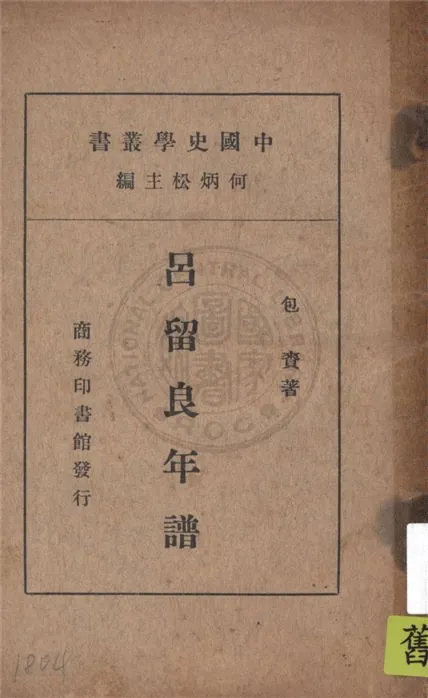 中國史學叢書
何炳松主編
包賚著
呂留良年譜
商務印書館發行
NATIONAL CENTRAL LIBRARY
國家圖書館
舊
1804